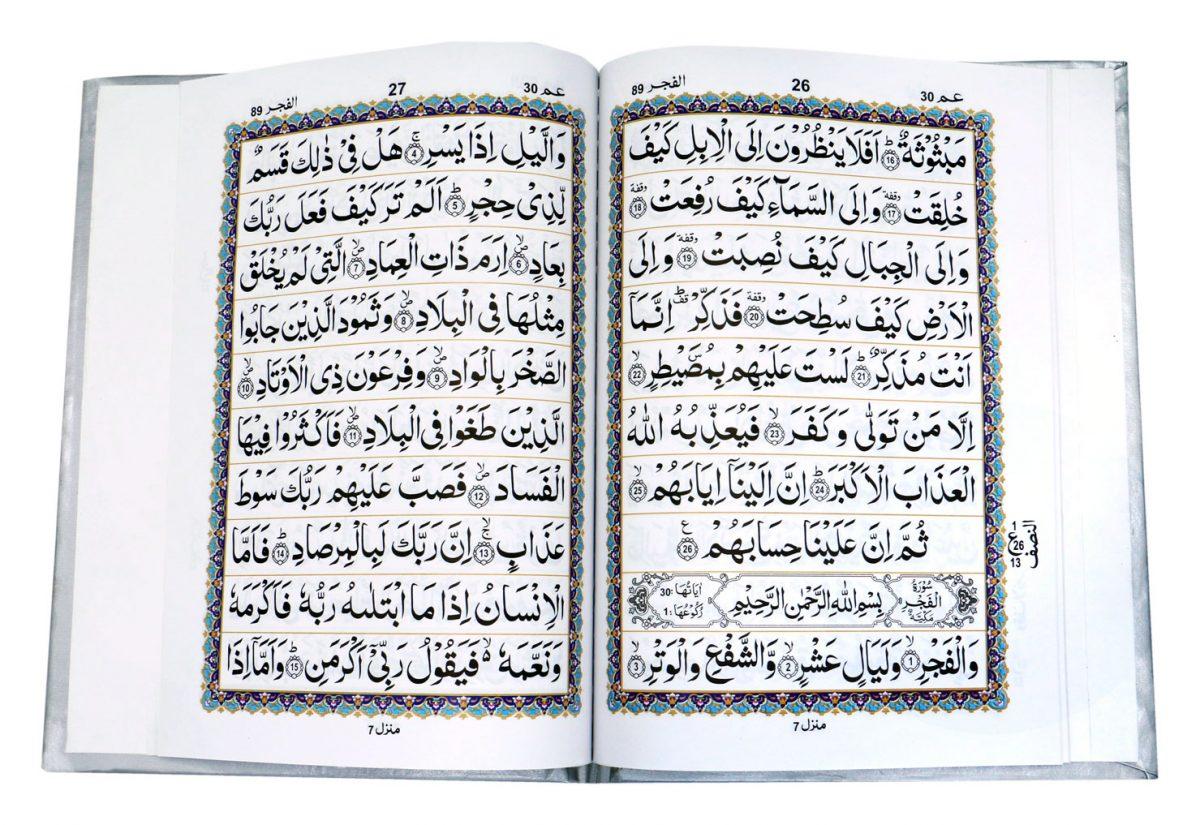 الفجر 89
26
عم 30
مَبْثُوْثَةٌ ؕ16 اَفَلَا یَنْظُرُوْنَ اِلَی الْاِبِلِ كَیْفَ
خُلِقَتْ وقفة17 وَ اِلَی السَّمَآءِ كَیْفَ رُفِعَتْ وقفة18
وَ اِلَی الْجِبَالِ كَیْفَ نُصِبَتْ وقفة19 وَ اِلَی
الْاَرْضِ كَیْفَ سُطِحَتْ وقفة20 فَذَكِّرْ قف اِنَّمَاۤ
اَنْتَ مُذَكِّرٌ ؕ21 لَسْتَ عَلَیْهِمْ بِمُصَۜیْطِرٍ ۙ22
اِلَّا مَنْ تَوَلّٰی وَ كَفَرَ ۙ23 فَیُعَذِّبُهُ اللهُ
الْعَذَابَ الْاَكْبَرَ ؕ24 اِنَّ اِلَیْنَاۤ اِیَابَهُمْ ۙ25
ثُمَّ اِنَّ عَلَیْنَا حِسَابَهُمْ ع26
سُوْرَةُ الْفَجْرِ مَكِّیَّةٌ بِسْمِ اللهِ الرَّحْمٰنِ الرَّحِیْمِ اٰیَاتُهَا: 30 رُكُوْعُهَا: 1
وَ الْفَجْرِ ۙ1 وَ لَیَالٍ عَشْرٍ ۙ2 وَّ الشَّفْعِ وَ الْوَتْرِ ۙ3
منزل 7
النصف
1
ع
26
13
الفجر 89
27
عم 30
وَ الَّیْلِ اِذَا یَسْرِ ۚ4 هَلْ فِیْ ذٰلِكَ قَسَمٌ
لِّذِیْ حِجْرٍ ؕ5 اَلَمْ تَرَ كَیْفَ فَعَلَ رَبُّكَ
بِعَادٍ ۪ۙ6 اِرَمَ ذَاتِ الْعِمَادِ ۪ۙ7 الَّتِیْ لَمْ یُخْلَقْ
مِثْلُهَا فِی الْبِلَادِ ۪ۙ8 وَ ثَمُوْدَ الَّذِیْنَ جَابُوا
الصَّخْرَ بِالْوَادِ ۪ۙ9 وَ فِرْعَوْنَ ذِی الْاَوْتَادِ ۪ۙ10
الَّذِیْنَ طَغَوْا فِی الْبِلَادِ ۪ۙ11 فَاَكْثَرُوْا فِیْهَا
الْفَسَادَ ۪ۙ12 فَصَبَّ عَلَیْهِمْ رَبُّكَ سَوْطَ
عَذَابٍ ۚۙ13 اِنَّ رَبَّكَ لَبِالْمِرْصَادِ ؕ14 فَاَمَّا
الْاِنْسَانُ اِذَا مَا ابْتَلٰىهُ رَبُّهٗ فَاَكْرَمَهٗ
وَ نَعَّمَهٗ ۙ۬ فَیَقُوْلُ رَبِّیْۤ اَكْرَمَنِ ؕ15 وَ اَمَّاۤ اِذَا
منزل 7